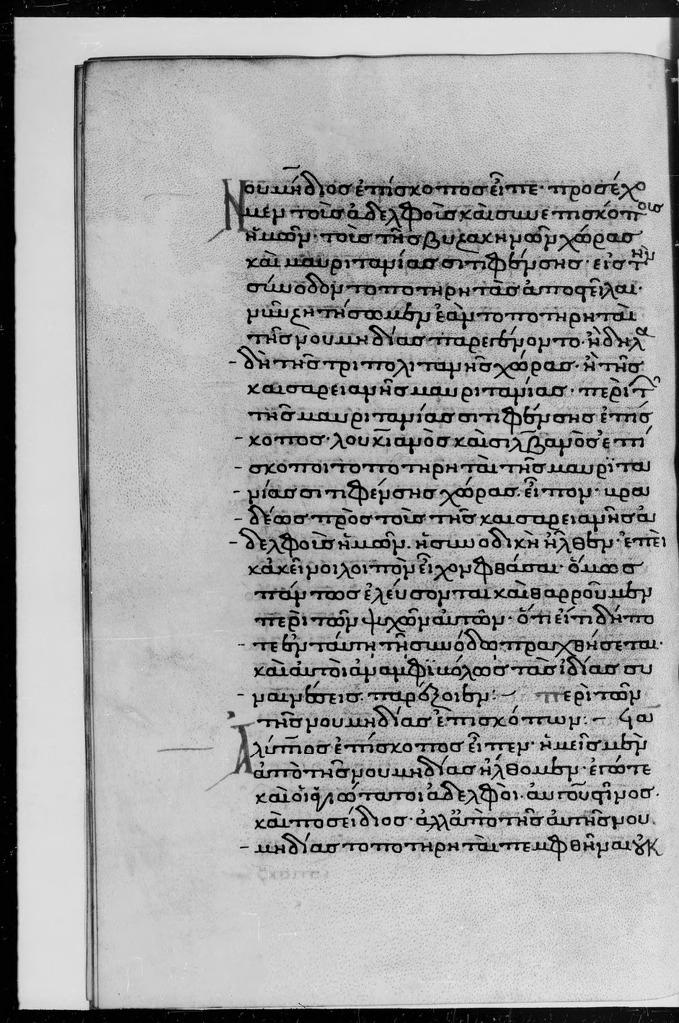 Νουμήδιος ἐπίσκοπος εἶπε· προσέχο
μεν τοῖς ἀδελφοῖς καὶ συνεπισκόποις
ἡμῶν· τοῖς τῆς βυζακηνῶν χώρας
καὶ μαυριτανίας σιτιφένσης· εἰς τὴν
σύνοδον τοποτηρητὰς ἀποστεῖλαι·
νῦν ζητήσωμεν ἐὰν τοποτηρηταὶ
τῆς νουμηδίας παρεγένοντο· ἠδηλα
δὴ τῆς τριπολιτανῆς χώρας· ἢ τῆς
καισαρειανῆς μαυριτανίας· περὶ τ
τῆς μαυριτανίας σιτιφένσης ἐπίσ
κοπος· λουκϊανὸς καὶ σιλβανὸς ἐπί
σκοποι τοποτηρηταὶ τῆς μαυριτα
νίας σιτιφένσης χώρας· εἶπον· βρα
δέως πρὸς τοῖς τῆς καισαρειανῆς ἀ
δελφοῖς ἡμῶν· ἡ συνοδικὴ ἦλθεν· ἐπεὶ
κἀκεῖνοι λοιπὸν εἶχον φθάσαι· ὅμως
πάντως ἐλεύσονται καὶ θαρροῦμεν
περὶ τῶν ψυχῶν αὐτῶν· ὅτι εἴ τι δήπο
τε ἐν ταύτῃ τῇ συνόδω πραχθήσεται·
καὶ αὐτοὶ ἀναμφϊβόλως τὰς ἰδίας συ
ναινέσεις παρέξοιεν: περὶ τῶν
τῆς νουμηδίας ἐπισκόπων:
Ἀλύπιος ἐπίσκοπος εἶπεν· ἡμεῖς μὲν
ἀπὸ τῆς νουμηδίας ἤλθομεν· ἐγώ τε
καὶ οἱ ἁγιώτατοι ἀδελφοὶ· αὐγουστῖνος·
καὶ ποσείδιος· ἀλλ' ἀπὸ τῆς αὐτῆς νου
μηδίας τοποτηρηταὶ πεμφθῆναι οὐκ